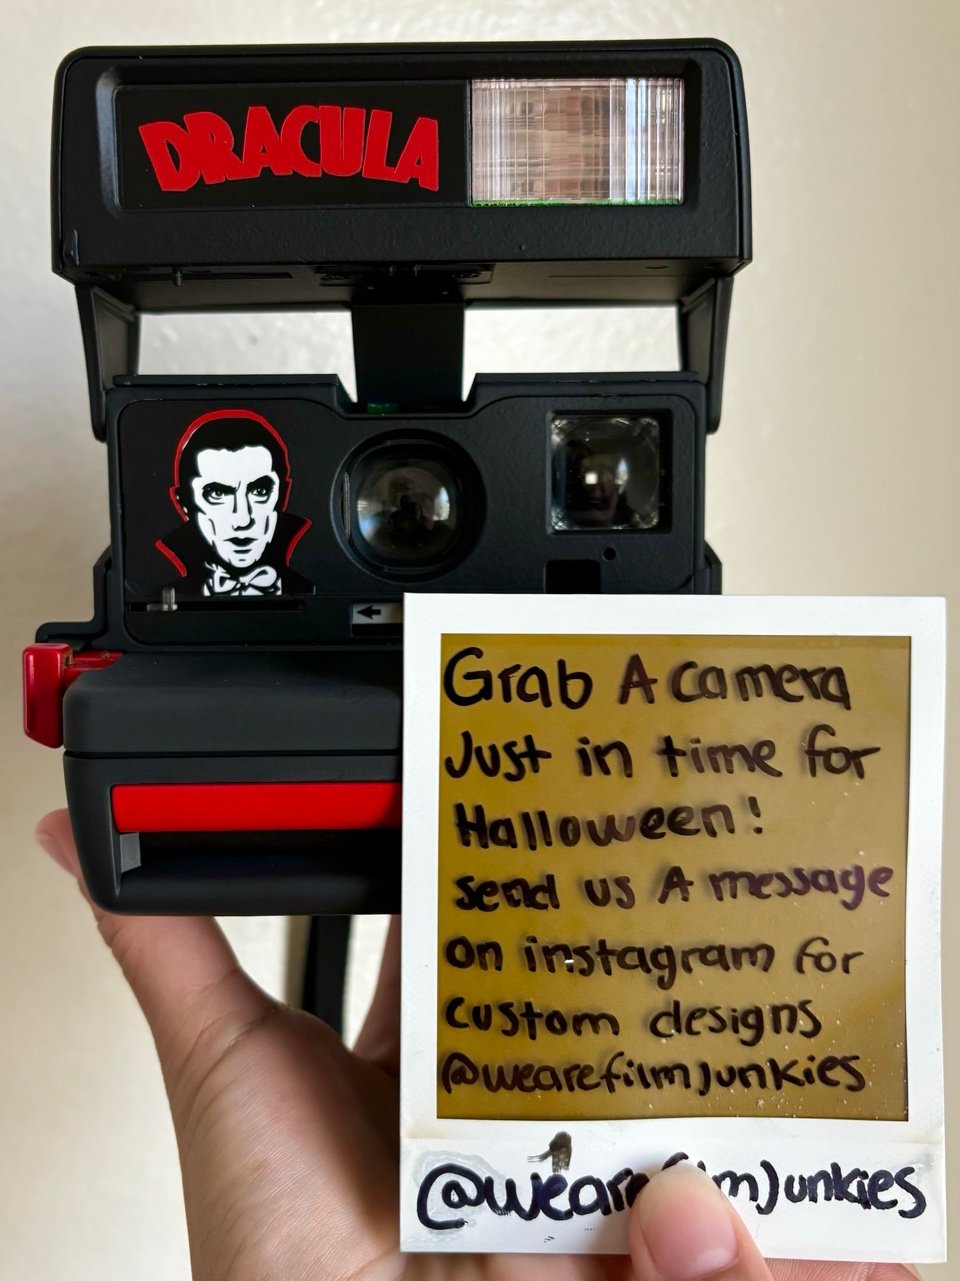 DRACULA
Grab A camera
Just in time for
Halloween!
send us A message
on instagram for
custom designs
@wearefilmjunkies
@wearefilmjunkies